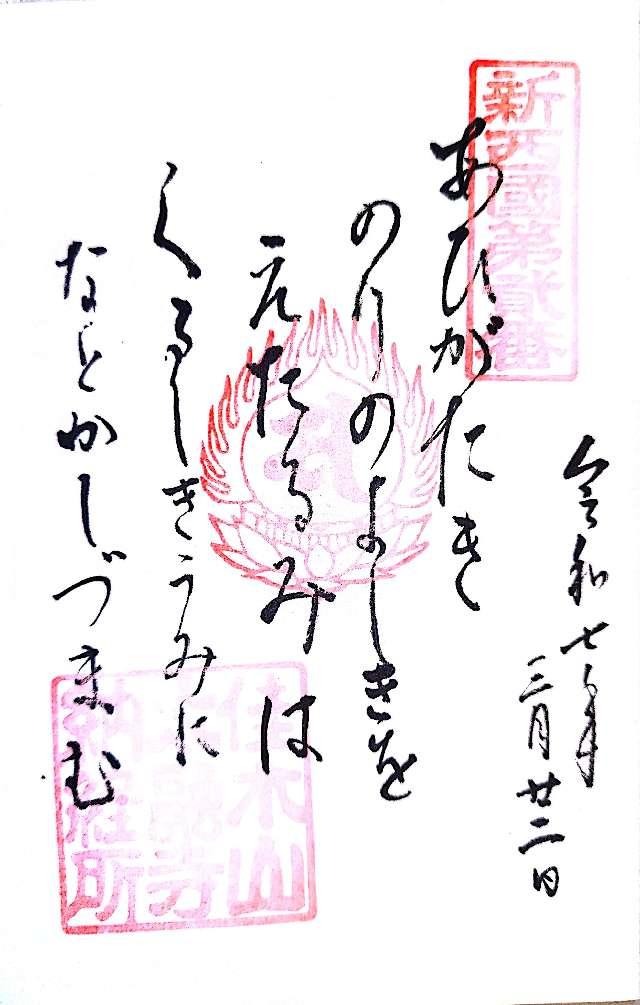 新西國第貳番
令和七年
三月廿二日
あひがたき
のりのよしきを
えたるみは
くるしきうみに
なとかしづまむ
佳木山
太融寺
納経所